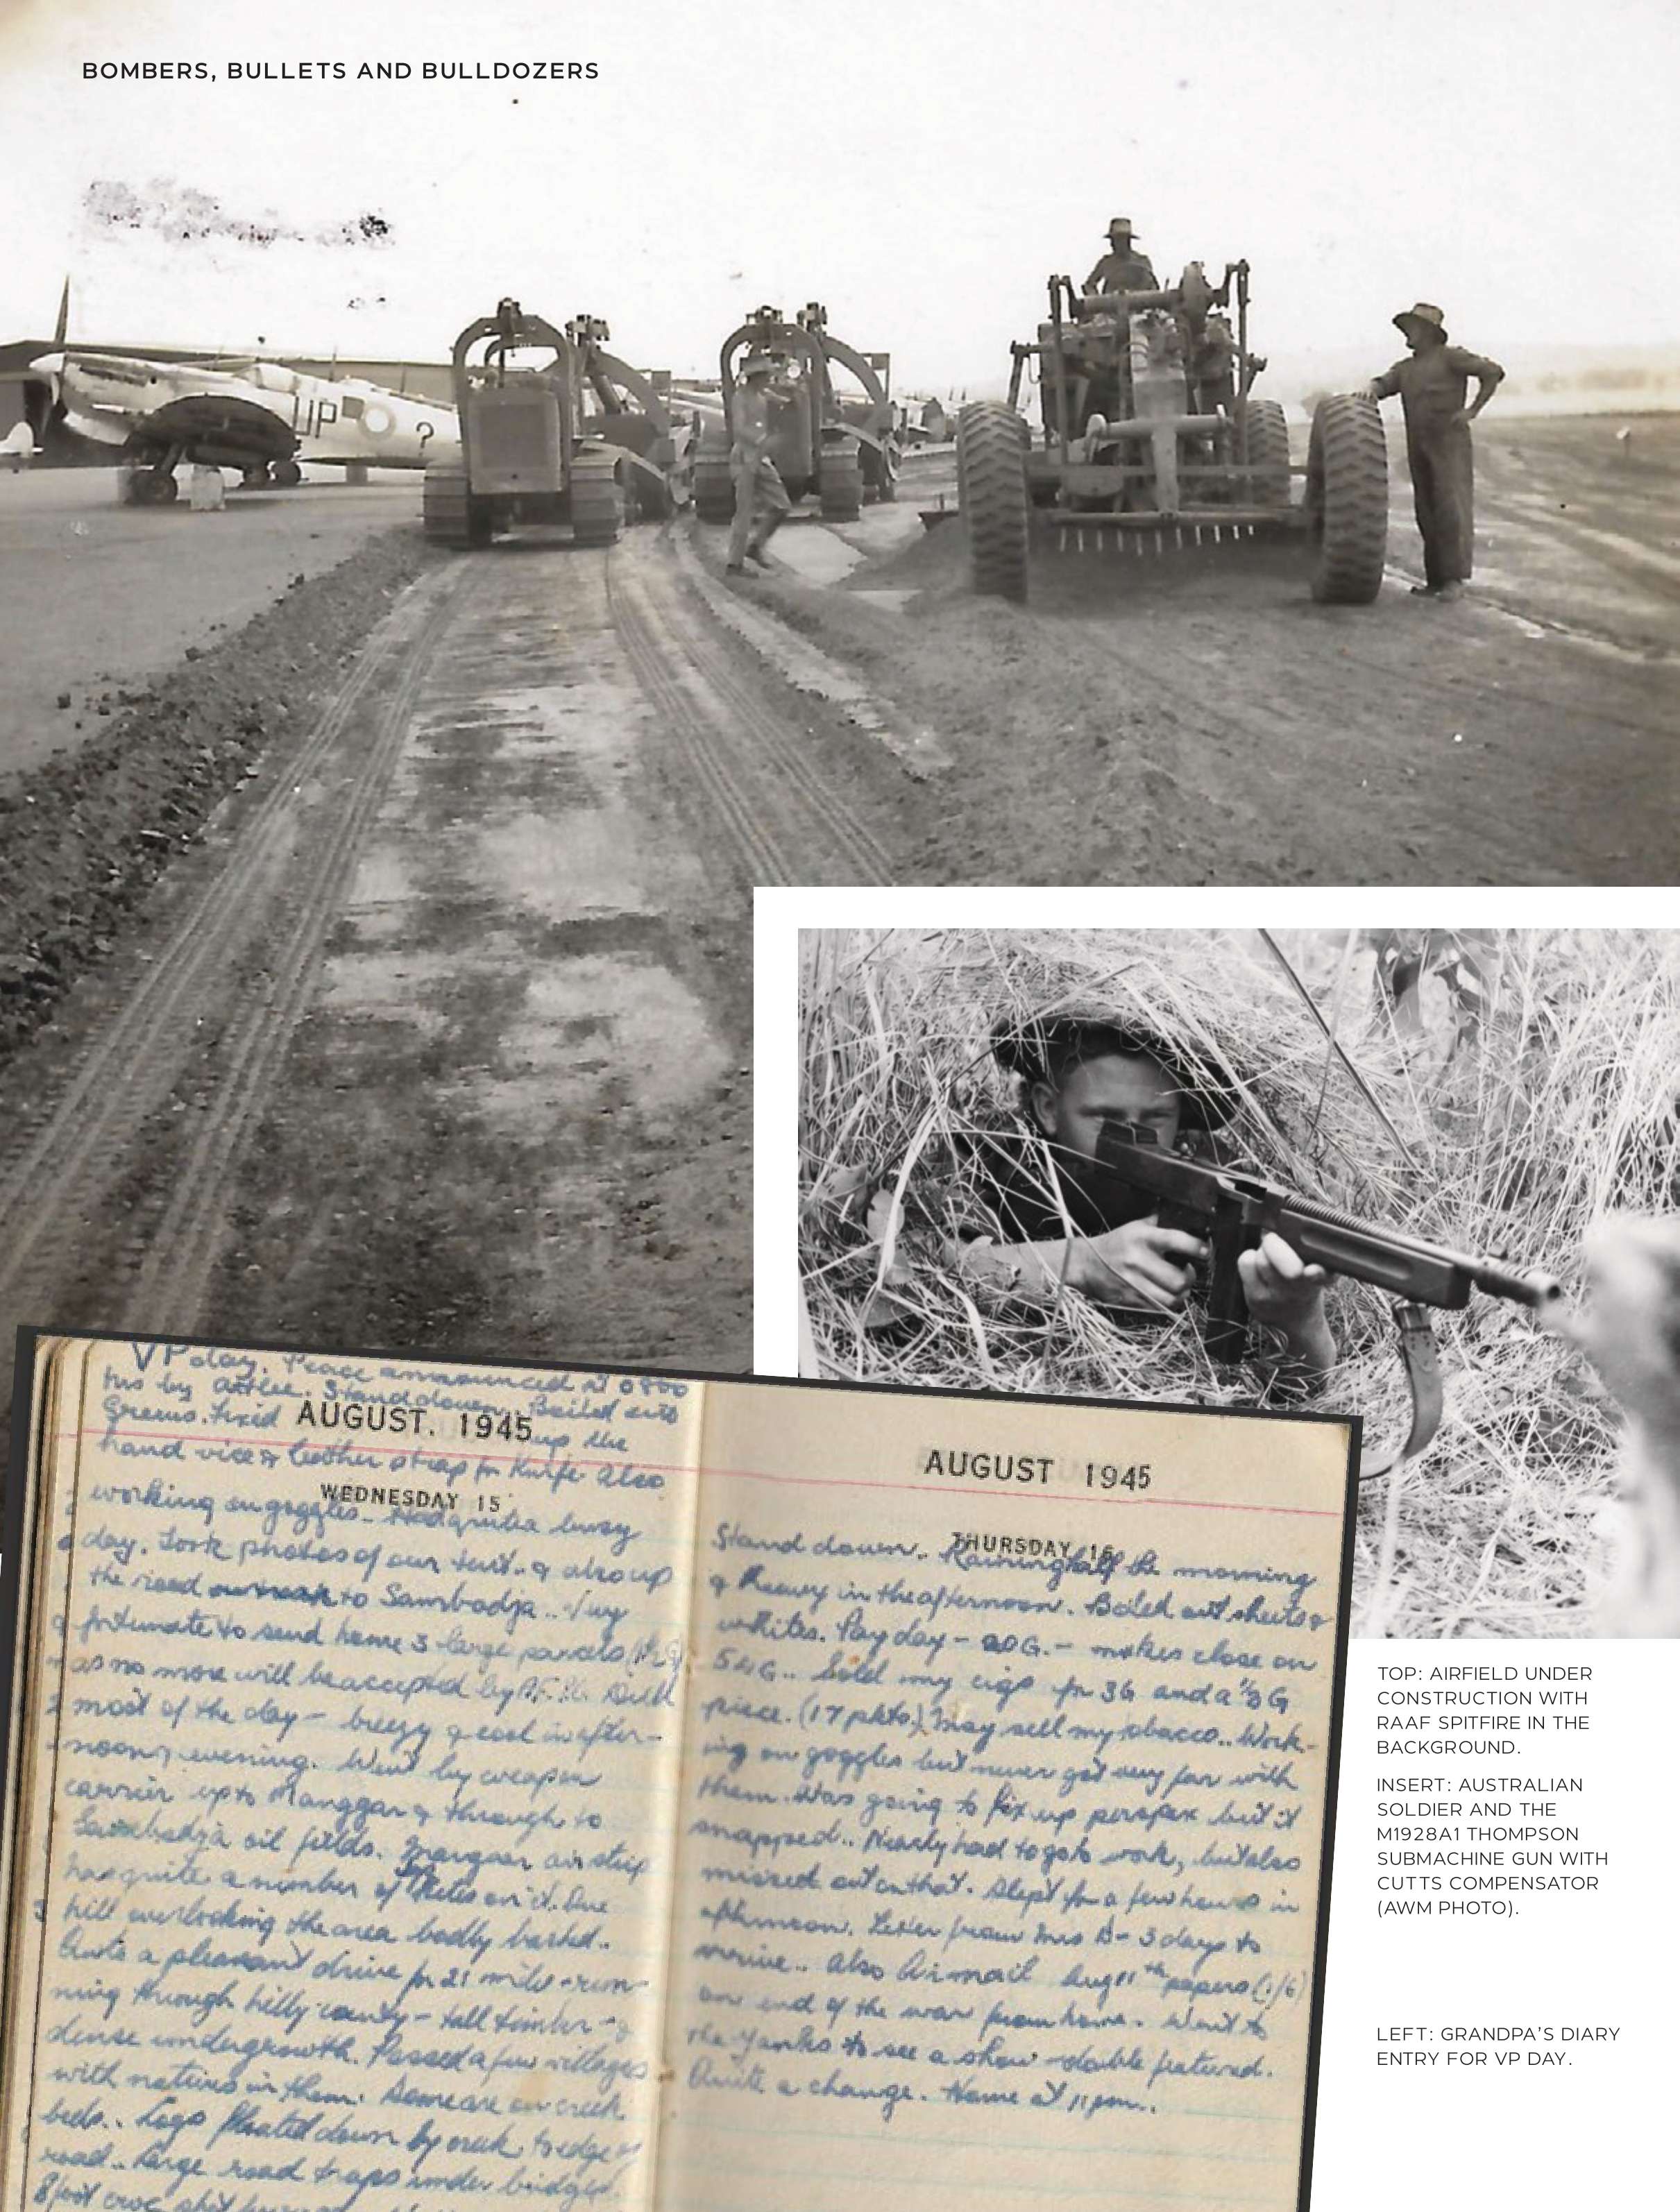 BOMBERS, BULLETS AND BULLDOZERS
UP
?
VP day. Peace announced at 0800
hrs by Attlee. Stand down. Boiled out
Greens. Fixed up the
AUGUST. 1945
hand vice & leather strap for Knife also
WEDNESDAY 15
working on goggles.. Had quite a busy
day. Took photos of our tent.. & also up
the road to Sambodja.. Very
fortunate to send home 3 large parcels
as no more will be accepted by
most of the day - breezy & cool in after-
noon & evening. Went by weapon
carrier up to Manggar & through to
Sambodja oil fields. Manggar air strip
has quite a number of on it. One
hill overlooking the area badly bashed..
Quite a pleasant drive for 21 miles - run-
ning through hilly country - tall timber - &
dense undergrowth. Passed a few villages
with natives in them. Some are on creek
beds.. Logs floated down by creek to edge of
road.. Large road traps under bridges.
8 foot croc shot
AUGUST 1945
THURSDAY 16
Stand down.. Raining half the morning
& heavy in the afternoon. Boiled out sheets &
whites. Pay day - 20G. - makes close on
54G.. Sold my cigs for 3G and a ½ G
piece. (17 pkts.) May sell my tobacco.. Work-
ing on goggles but never got very far with
them. Was going to fix up perspex but it
snapped.. Nearly had to go to work, but also
missed out on that. Slept for a few hours in
afternoon. Letter from Mrs B - 3 days to
arrive.. Also Airmail Aug 11th papers (1/6)
on end of the war from home. Went to
the Yanks to see a show - double featured.
Quite a change. Home at 11pm..
TOP: AIRFIELD UNDER
CONSTRUCTION WITH
RAAF SPITFIRE IN THE
BACKGROUND.
INSERT: AUSTRALIAN
SOLDIER AND THE
M1928A1 THOMPSON
SUBMACHINE GUN WITH
CUTTS COMPENSATOR
(AWM PHOTO).
LEFT: GRANDPA'S DIARY
ENTRY FOR VP DAY.